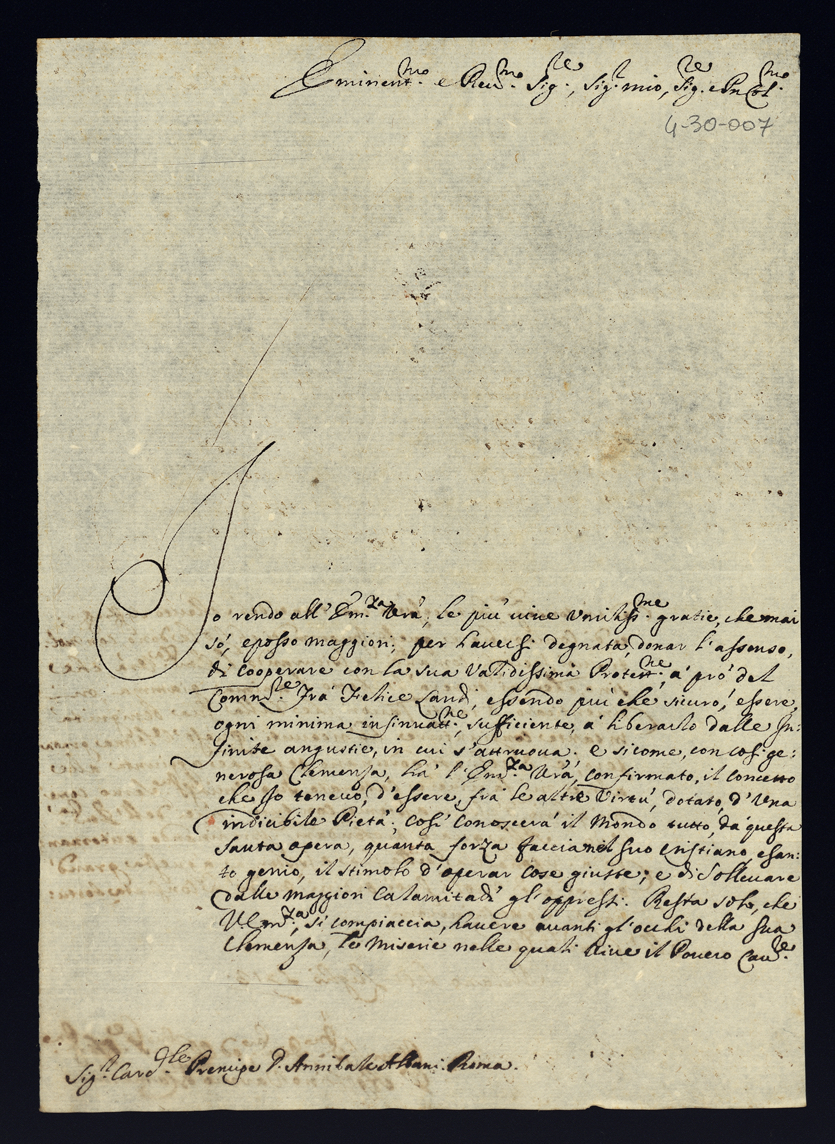 Eminent.mo e Reu.mo Sig.re, Sig.r mio, Sig.re e Pn Col.mo
4-30-007
Io rendo all'Em.za Vrã, le più viue Vmiliss.me gratie, che mai
sò, e posso maggiori; per hauersi degnata, donar l'assenso,
di Cooperare con la sua Validissima Protett.ne, à prò del
Comm.re Frà Felice Landi, essendo più che sicuro, essere,
ogni minima insinuatt.ne, sufficiente, à liberarlo dalle In:
finite angustie, in cui s'attruoua. e sicome, con così ge:
nerosa Clemenza, hà l'Em.za Vrã, confirmato, il concetto
che Io teneuo, d'essere, frà le altre Virtù, dotato, d'Vna
indicibile Pietà; Così conoscerà il Mondo tutto, da questa
Santa opera, quanta forza faccia nel suo Cristiano, e san:
to genio, il stimolo d'operar cose giuste; e di Solleuare
dalle maggiori Calamitadi gl'oppressi. Resta solo, che
V Em.za, si compiaccia, hauere auanti gl'occhi della sua
Clemenza, le Miserie nelle quali Viue il Pouero Cau.re
Sig.r Card.le Prencipe D. Annibale Albani. Roma.